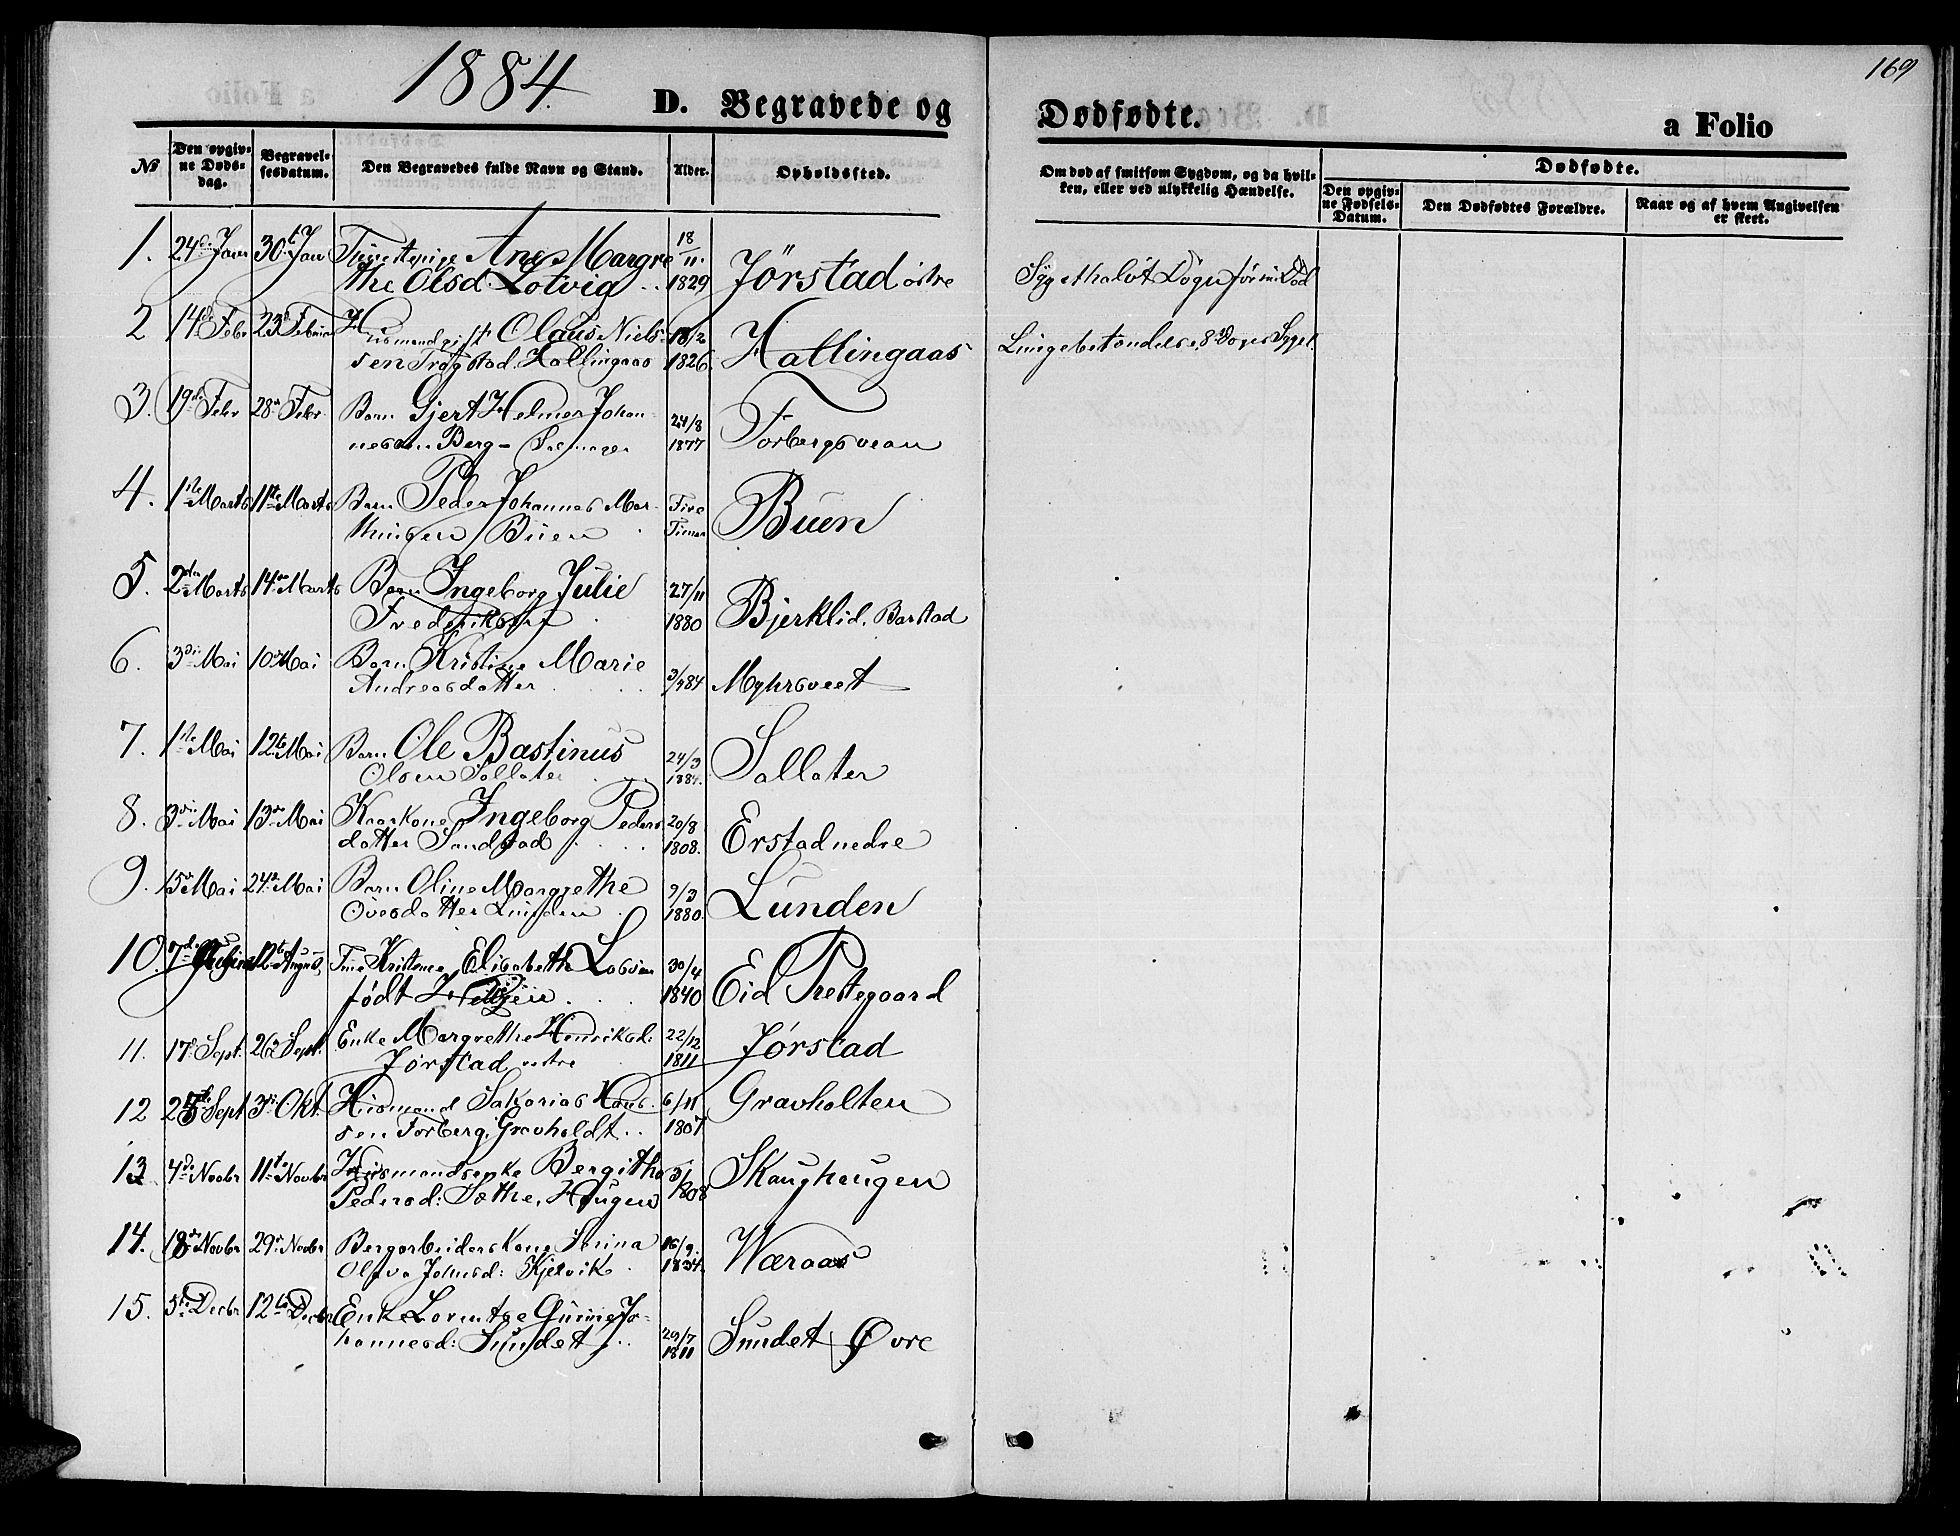 1884.
D. Begravede og Dødfødte.
a Folio
169
No
Den opgiv-
ne Døds-
dag.
Begravel-
sesdatum.
Den Begravedes fulde Navn og Stand.
Alder.
Opholdssted.
Om død af smitsom Sygdom, og da hvil-
ken, eller ved ulykkelig Hændelse.
Dødfødte.
Den opgiv-
ne Fødsels-
Datum.
Den Dødfødtes Forældre.
Naar og af hvem Angivelsen
er skeet.
1. 24de Janr 30te Jan Ane Margre 18/11
the Olsd: Lotvig 1829 Jørstad østre Døgn før sin Død
2 14de Febr 23de Februar Husmand gift Olaus Niels- 18/2
sen Trøgstad. Hallingaas 1826. Hallingaas 8te Doges Syget.
3. 19de Febr 28de Febr. Barn Gjert Helmer Johan- 24/8
nessen Berg - 1877 Forbergsvean
4. 1ste Marts 11te Marts Barn Peder Johannes Mar- Fire
thinsen Buen Timer Buen
5. 2den Marts 14de Marts Barn Ingeborg Julie 27/11
Frederiksen 1880 Bjerklid, Barstad
6. 3die Mai 10de Mai Barn Kristine Marie
Andreasdatter 3/484 Myhrsveet
7. 1ste Mai 12te Mai Barn Ole Bastinus 24/3
Olsen Sallater 1884. Sallater
8. 3die Mai 13de Mai Kaarkone Ingeborg Peders 20/8
datter Sandstad 1808. Erstad nedre
9. 15de Mai 24de Mai Barn Oline Margrethe 9/3
Ovesdatter Lunden 1880. Lunden
10. 7de 12te August Elisabeth 30/4
født 1840 Eid Prestegaard
11. 17de Sept. 26de Sept. Enke Margrethe Henriksd: 22/12
Jørstad østre 1811 Jørstad
12 25de Sept 3die Okt. Husmand Sakarias Hans- 6/11
sen Forberg, Gravholdt 1807 Gravholten
13 4de Novbr 11te Novbr Husmandsenke Bergitha
Pedersd: Sæthe, Haugen 1808 Skaughaugen
14. 18de Novbr 29de Novbr Bergarbeiderskone Serina 16/9.
Oliva Johnsd: Kjelvik 1834. Wæraas
15. 5te Decbr 12te Decbr Enke Lorntse Jo-
hannesd: Sundet 29/7
1811 Sundet Øvre